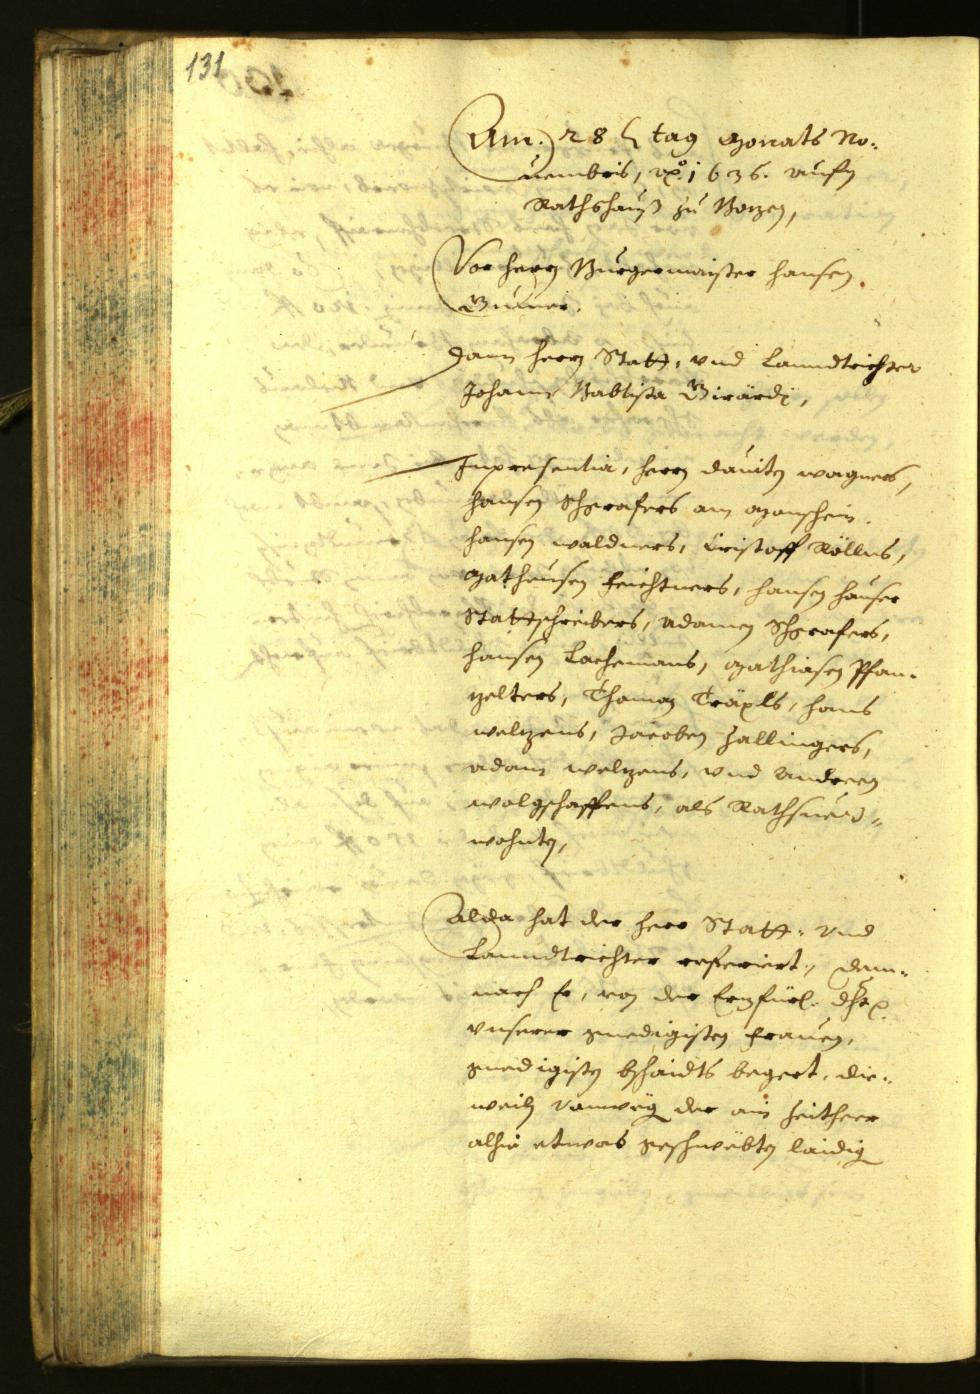 131
Am. 28 tag Monats No-
uembris, 1636. aufm
Rathshauß zu Bozen,
Vor herrn Burgermaister Hansen
Gumer.
Dann herrn Statt- vnd Lanndtrichter
Johann Babtista Girardi,
Inpresentia, herrn Dauiten Wagners,
Hansen Schrafers am Monschein.
Hansen Waldners, Cristoff Röllns,
Matheusen Feichtners, Hansen Hauser
Stattschreibers, Adamen Schrafers,
Hansen Lachemans, Mathiasen Pfan-
zelters, Thoman Träxls, Hans
Welzens, Jacoben Zallingers,
Adam Welzens, vnd Andreen
Wolgschaffens, als Rathsuer-
wohnten,
Alda hat der Herr Statt- vnd
Lanndtrichter referiert, dem-
nach Er, von der Erzfürl.
vnserer gnedigisten Frauen,
gnedigisten bschaidts begert, die-
weiln der ain Zeitheer
alhie etwas geschwebten laidig